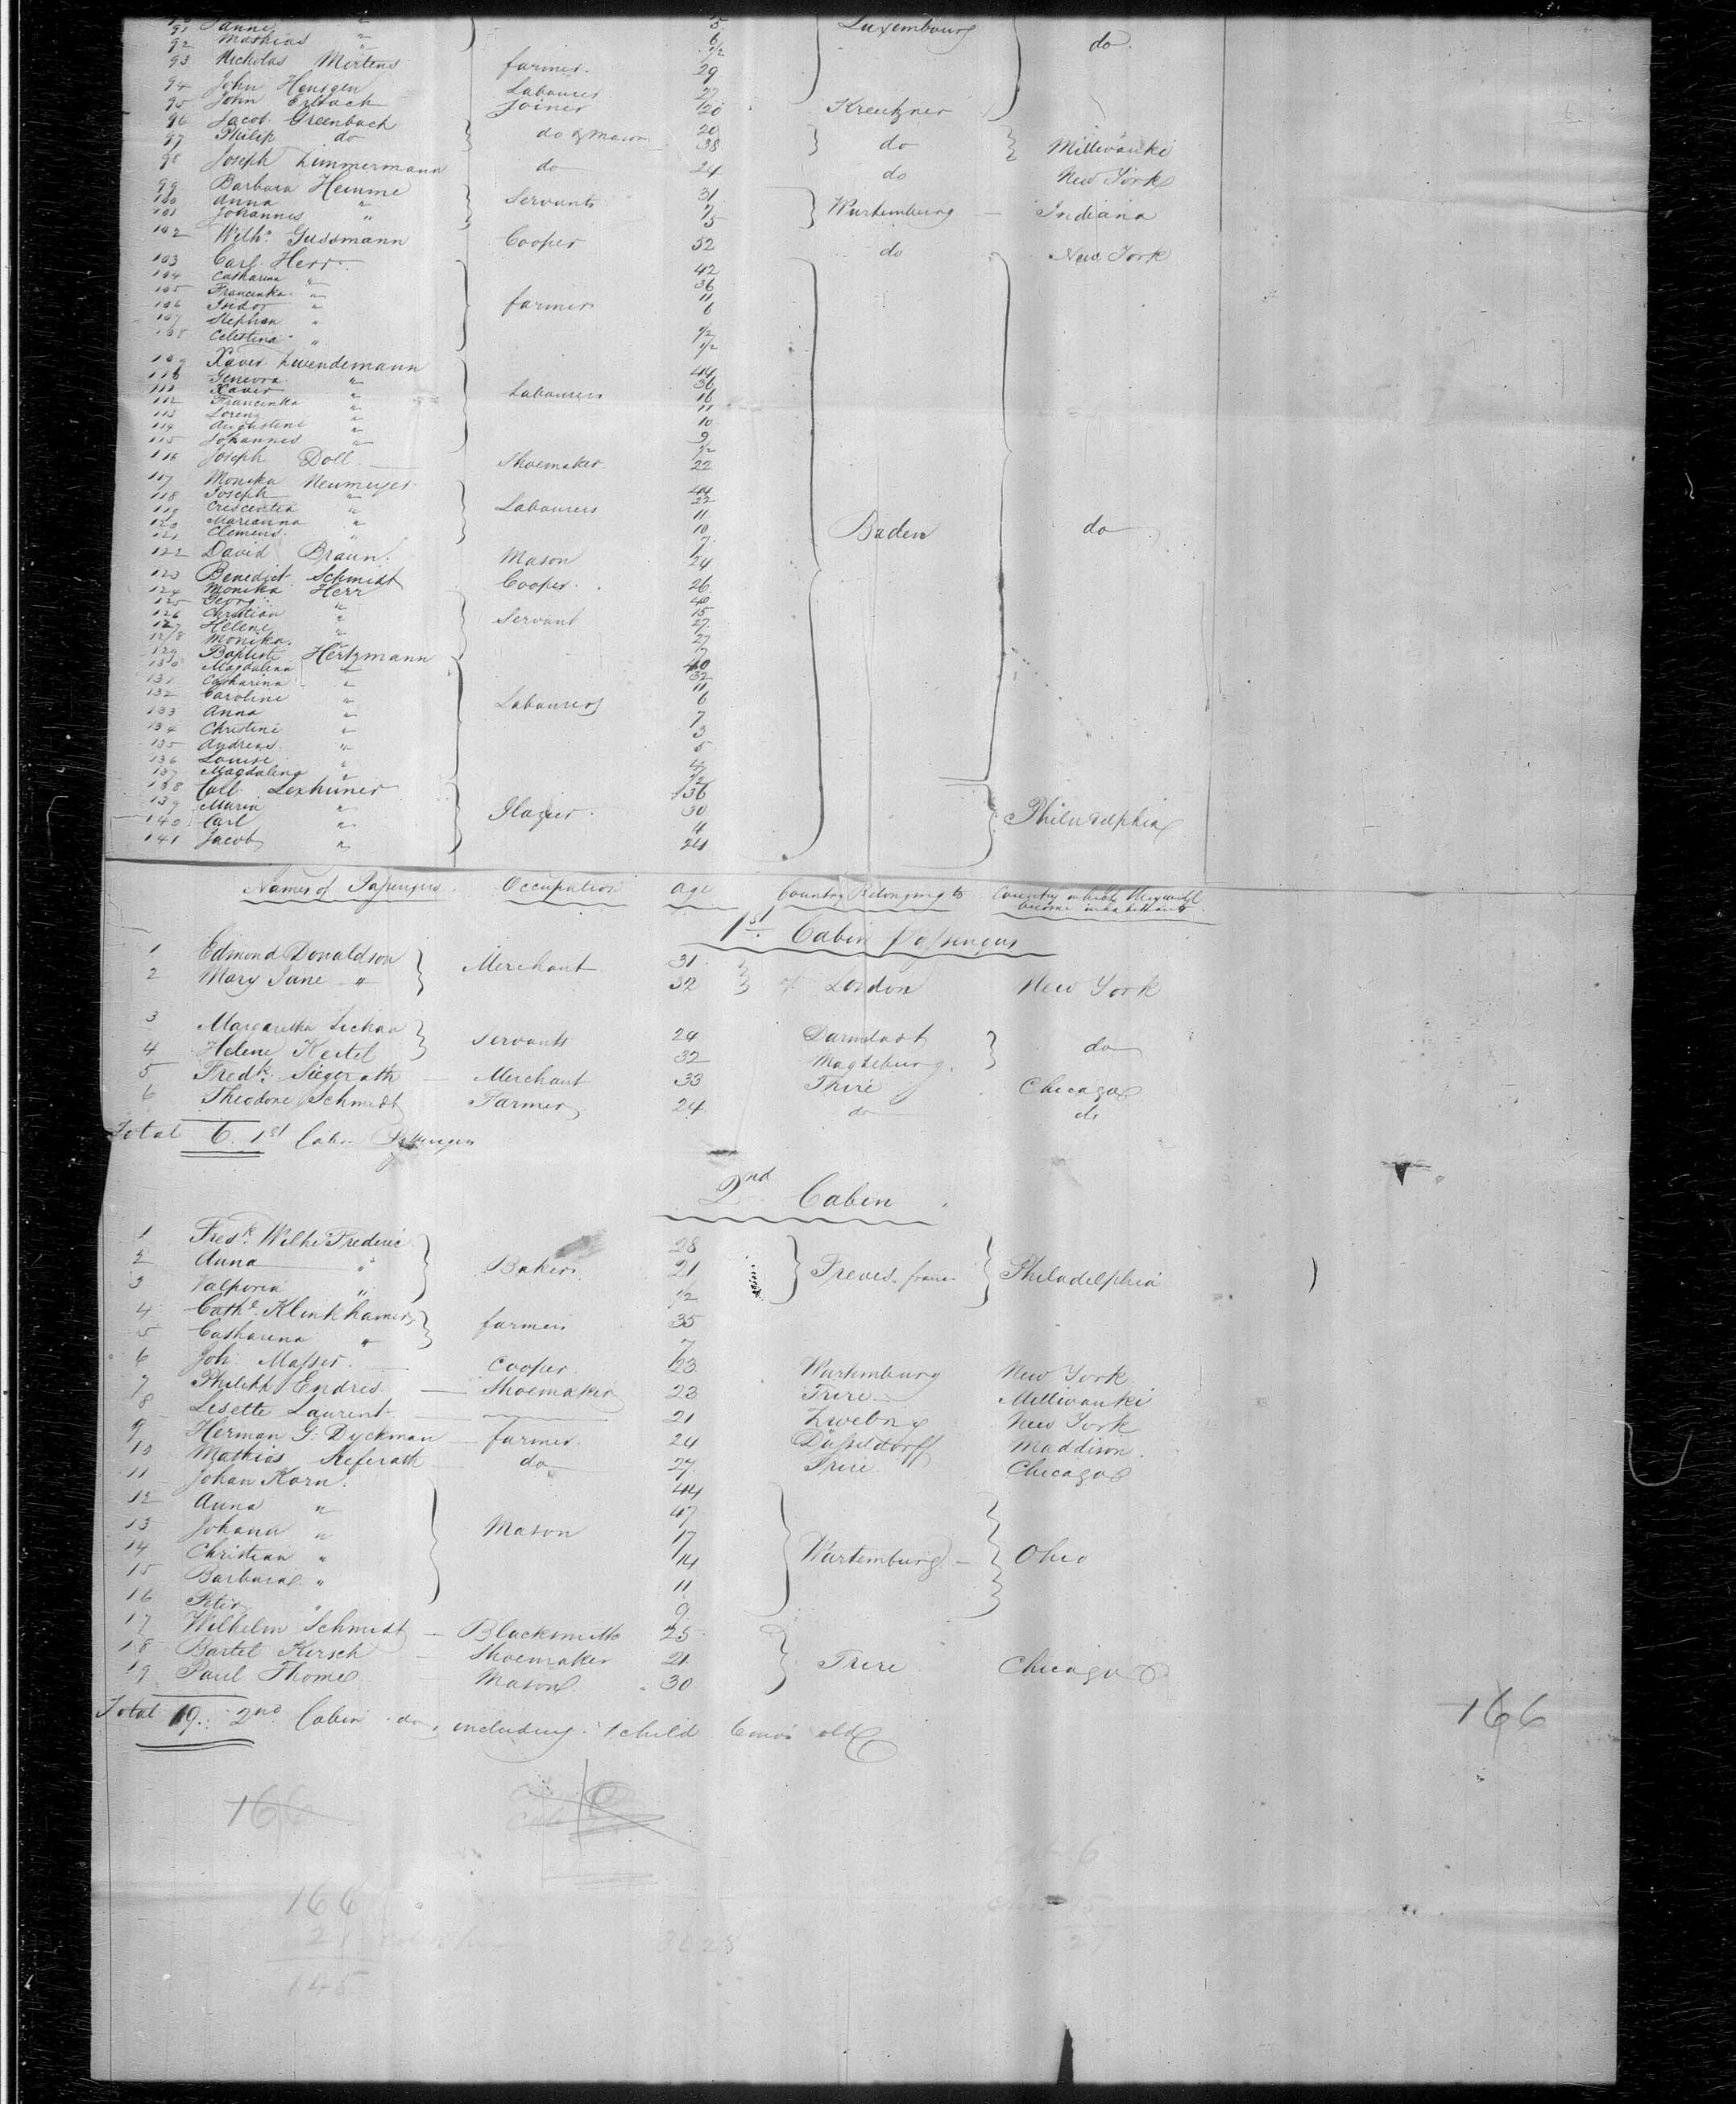 91 " 5 Luxembourg
92 Mathias " 6 do
93 Nicholas Mertens farmer 29
94 John Hensgen Labourer 27
95 John Joiner 20 Kreutzner
96 Jacob Greenbach do & Mason 20 do Millwauki
97 Philip do 38
98 Joseph Zimmermann do 24 do New York
99 Barbara Hemme Servants 31 Wurtemburg Indiana
100 Anna " 7
101 Johannes " 5
102 Wilhm Gussmann Cooper 52 do New York
103 Carl Herr farmers 42
104 Catharina " 36
105 Francinka " 11
106 Isidor " 6
107 Stephan " 1/2
108 Celestina " 1/2
109 Xaver Zwendemann Labourers 44
110 Genevra " 36
111 Xaver " 16
112 Francinka " 11
113 Lorenz " 10
114 Augustine " 9
115 Johannes " 1/2
116 Joseph Doll Shoemaker 22
117 Monika Neumeyer Labourers 44
118 Joseph " 22
119 Crescentia " 11
120 Marianna " 10 Baden do
121 Clemens " 7
122 David Braun Mason 24
123 Benedict Schmidt Cooper 26
124 Monika Herr Servant 40
125 Georg " 15
126 Christian " 27
127 Helene " 27
128 Monika " 7
129 Baptiste Hertzmann Labourers 40
130 Magdalena " 32
131 Catharina " 11
132 Caroline " 6
133 Anna " 7
134 Christine " 3
135 Andreas " 5
136 Louise " 4
137 Magdalena " 1/2
138 Lexhuner Glazier 36 Philadelphia
139 Maria " 30
140 Carl " 4
141 Jacob " 24
Names of Passengers Occupation Age Country Belonging to Country in which they will become inhabitants
1st Cabin Passengers
1 Edmond Donaldson Merchant 31
2 Mary Jane " 32 London New York
3 Margaretha Servants 24 Darmstadt do
4 Helene Keitel 32 Magdeburg
5 Fredk. Siegerath Merchant 33 Trire Chicago
6 Theodore Schmidt Farmer 24 do do
Total 6. 1st Cabin Passengers
2nd Cabin
1 Fredk. Wilhe Frederic Bakers 28 Philadelphia
2 Anna " 21 Treves
3 Valporia " 1/2
4 Cathe. Klinkhamer farmers 35
5 Catharina " 7
6 Joh. Masser Cooper 23 Wurtemburg New York
7 Philipp Endres Shoemaker 23 Trire Millwauki
8 Lisette Laurent 21 New York
9 Herman G. Dyckman farmer 24 Düsseldorff Maddison
10 Mathias Referath do 27 Trire Chicago
11 Johan Korn Mason 44
12 Anna " 47
13 Johann " 17
14 Christian " 14 Wurtemburg Ohio
15 Barbara " 11
16 Peter " 9
17 Wilhelm Schmidt Blacksmith 25
18 Bartel Kirsch Shoemaker 21 Trire Chicago
19 Paul Thome Mason 30
Total 19. 2nd Cabin do, including 1 child 6 mos old
166
166
166
21
145